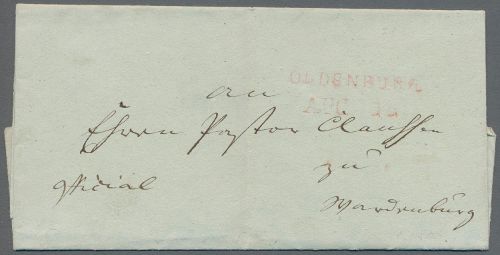 OLDENBURG
AUG
an
Ehren Pastor Claussen
zu
official
Wardenburg